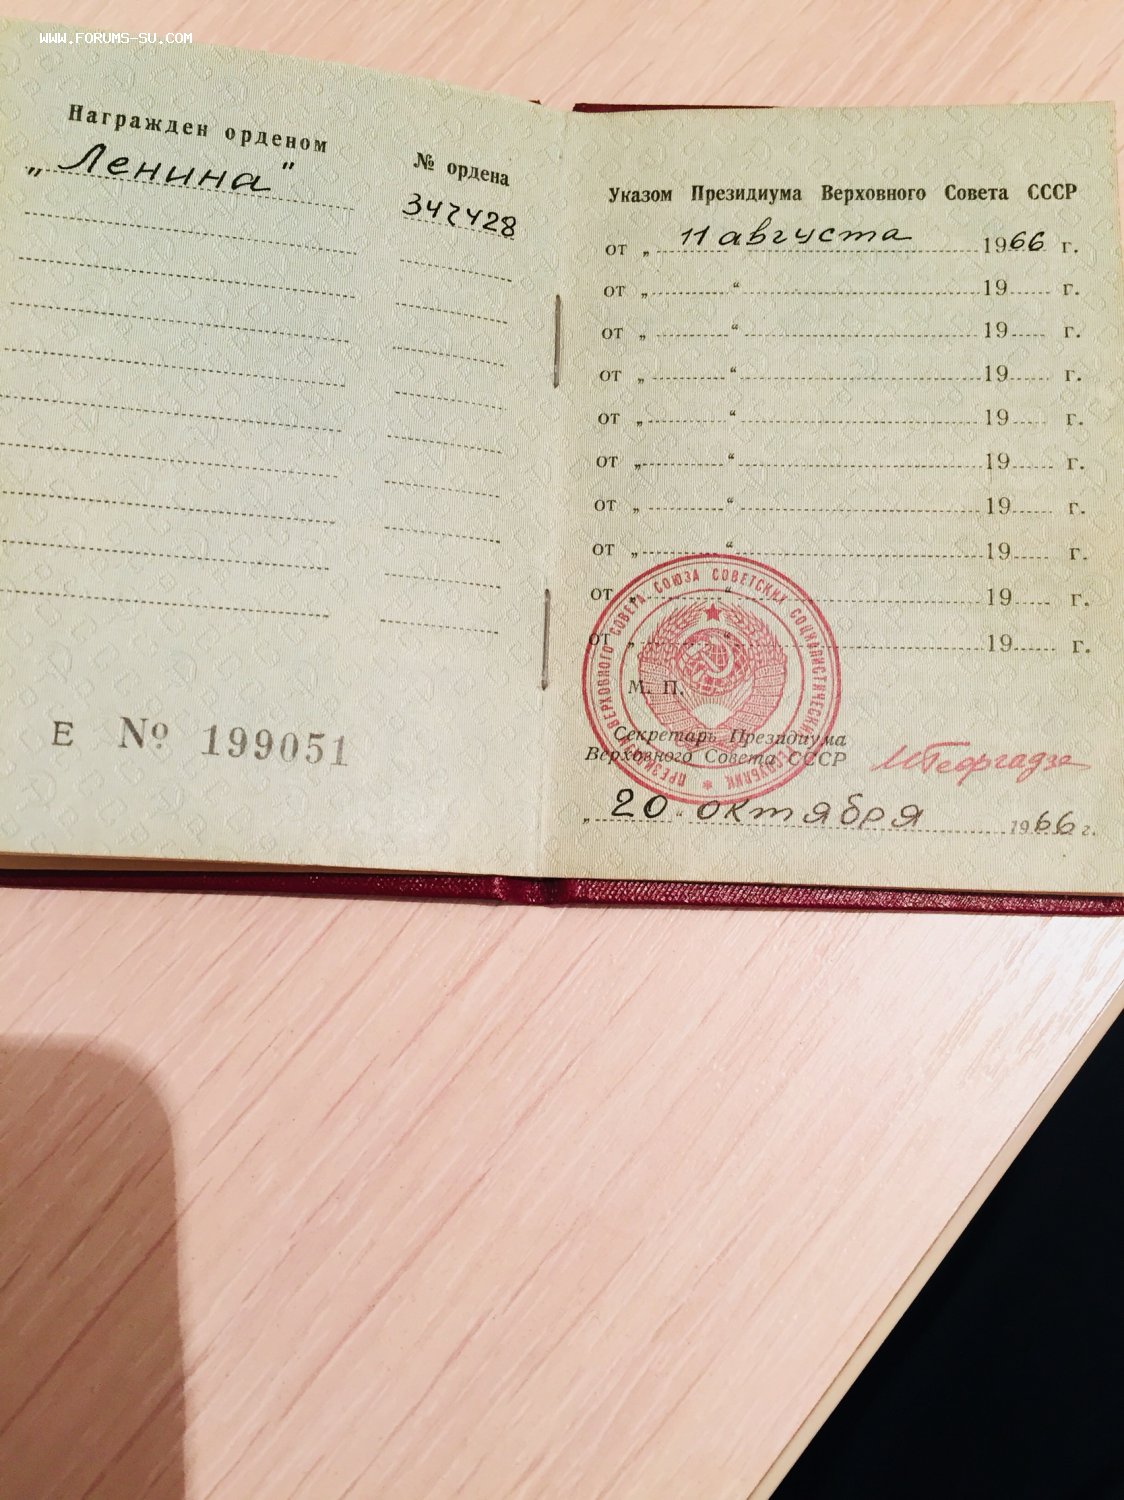 WWW.FORUMS-SU.COM
Награжден орденом
„Ленина"
№ ордена
347428
Е № 199051
Указом Президиума Верховного Совета СССР
от „ 11 августа 1966 г.
от „ “ 19 г.
от „ “ 19 г.
от „ “ 19 г.
от „ “ 19 г.
от „ “ 19 г.
от „ “ 19 г.
от „ “ 19 г.
от „ “ 19 г.
от „ “ 19 г.
ПРЕЗИДИУМ ВЕРХОВНОГО СОВЕТА СОЮЗА СОВЕТСКИХ СОЦИАЛИСТИЧЕСКИХ РЕСПУБЛИК
М. П.
Секретарь Президиума
Верховного Совета СССР
МГеоргадзе
„ 20 “ октября 1966 г.